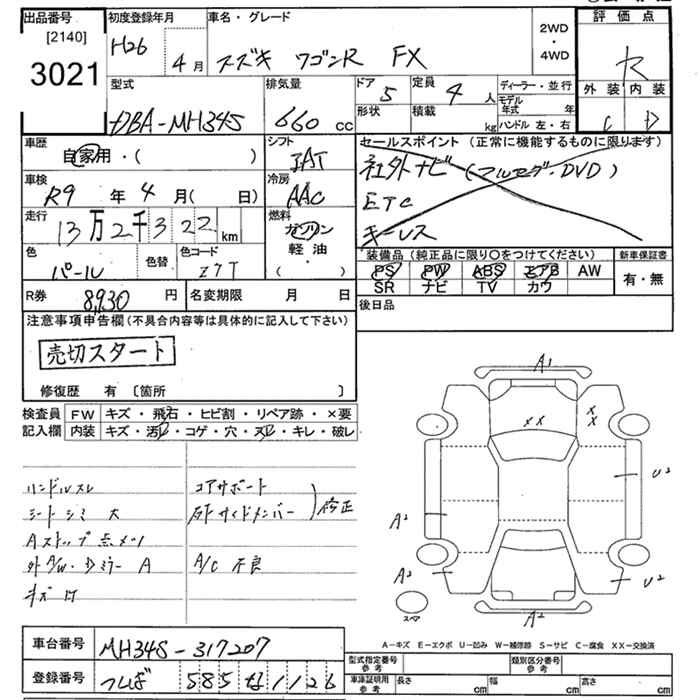 出品番号 初度登録年月 車名・グレード 2WD・4WD 評価点
[2140]
3021
H26 4月 スズキ ワゴンR FX R
型式 排気量 ドア 5 定員 4人 ディーラー・並行 外装 内装
DBA-MH34S 660cc 形状 積載 kg モデル年式 年 ハンドル 左・右 C D
車歴 自家用・( ) シフト セールスポイント (正常に機能するものに限ります)
IAT 社外ナビ(フルセグ・DVD)
車検 R9年4月(日) 冷房 AAC ETC
走行 13万2千322km 燃料 ガソリン 軽油・( ) キーレス
色 パール 色替 色コード Z7T
装備品 (純正品に限り〇をつけてください) 新車保証書
PS PW ABS エアB AW 有・無
SR ナビ TV カワ
R券 8,930円 名変期限 月 日 後日品
注意事項申告欄(不具合内容等は具体的に記入して下さい)
売切スタート
修復歴 有〔箇所 〕
検査員 FW キズ・飛石・ヒビ割・リペア跡・×要
記入欄 内装 キズ・汚レ・コゲ・穴・スレ・キレ・破レ
ハンドルスレ コアサポート
シートシミ大 右Fサイドメンバー 修正
Aストップ点メツ
外 ・Dミラー A A/C 不良
キズ 凹
A1
XX XX
U2
A2
A2 U2
スペア A2
A-キズ E-エクボ U-凹み W-補修跡 S-サビ C-腐食 XX-交換済
車台番号 MH34S-317207
登録番号 つくば 585 な 1126
型式指定番号 参考 類別区分番号 参考
車庫証明用 参考 長さ cm 幅 cm 高さ cm